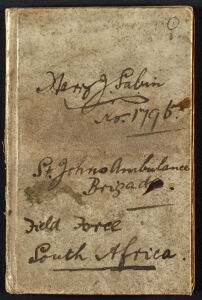 1
Mary J. Sabin
No. 1796.
St Johns Ambulance
Brigade.
Field Force
South Africa.